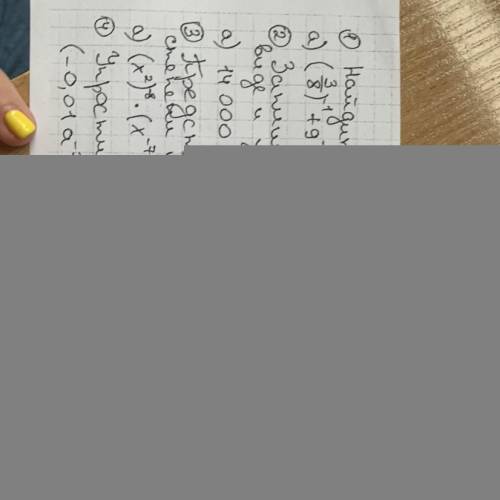 ① Найдит
а) (3/8)⁻¹ + 9
② Запиш
виде и
а) 14 000
③ Предст
степени
а) (x²)⁸ · (x⁻⁷
④ Упрости
(-0,01a⁻